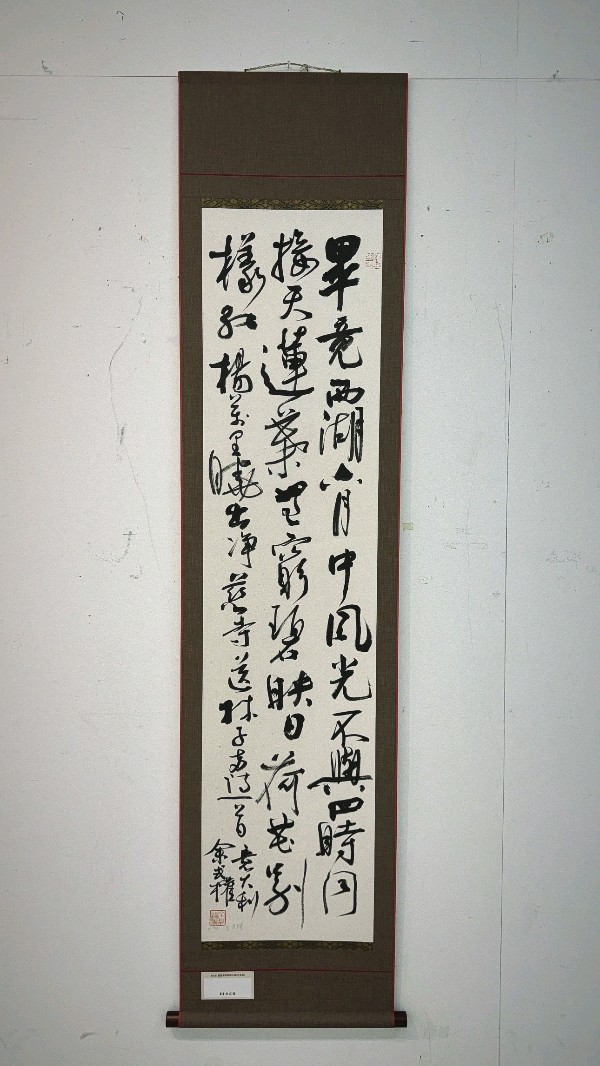 畢竟西湖六月中風光不與四時同
接天蓮葉無窮碧映日荷花別
樣紅楊萬里曉出净慈寺送林子方詩一首
意大利